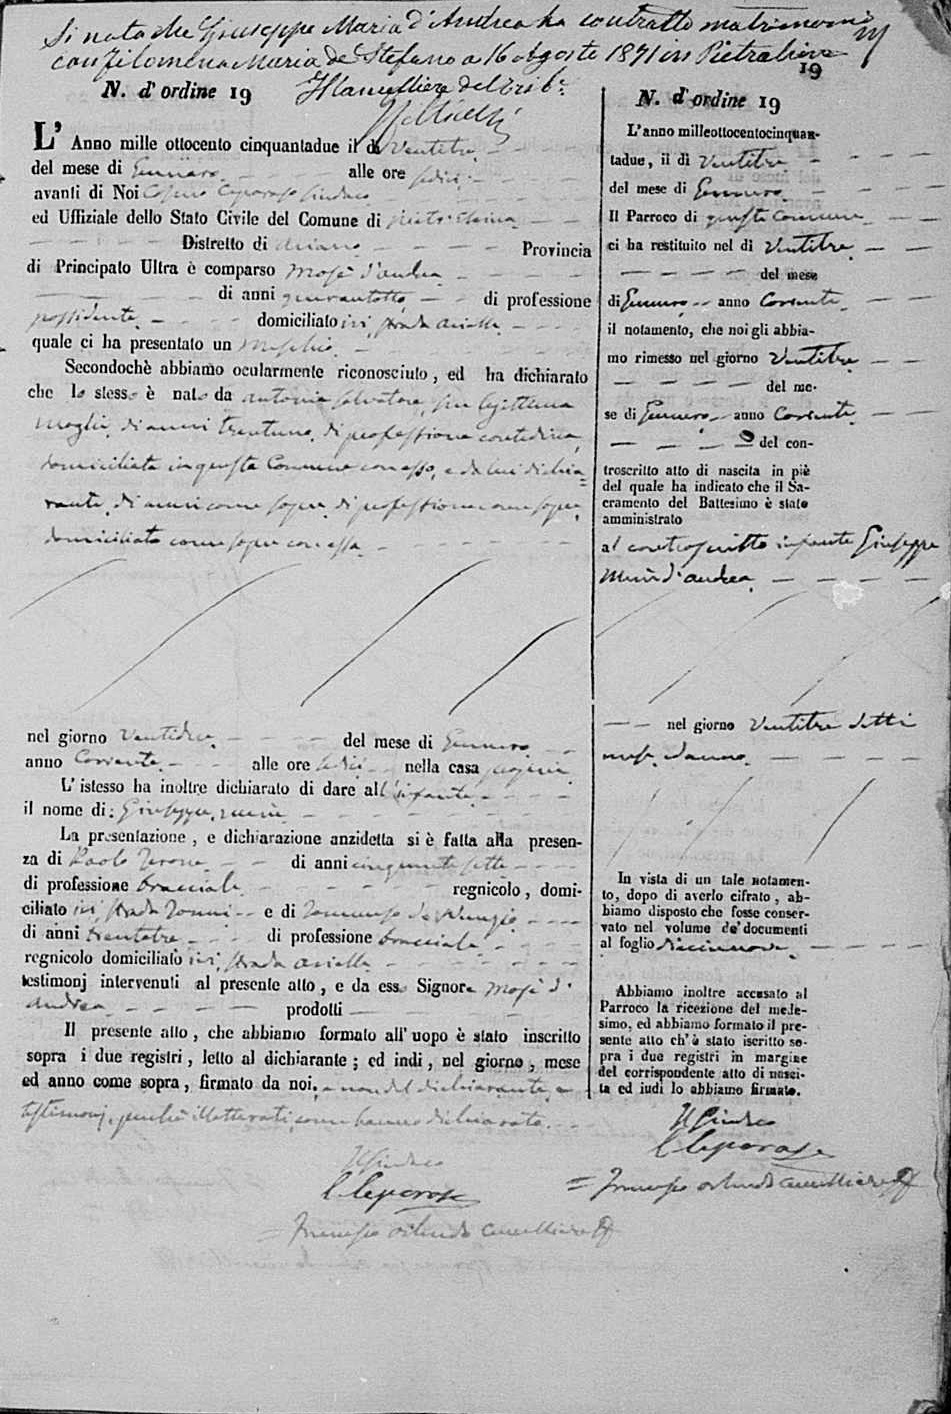 Si nota che Giuseppe Maria d'Andrea ha contratto matrimonio
con Filomena Maria de Stefano a 16 Agosto 1871 in Pietralcina
19
N. d'ordine 19
Il Cancelliere del Trib.
L' Anno mille ottocento cinquantadue il dì Ventitre
del mese di Gennaro alle ore sedici
avanti di Noi Caporaso Sindaco
ed Uffiziale dello Stato Civile del Comune di Pietrelcina
Distretto di Ariano Provincia
di Principato Ultra è comparso Mosè d'Andrea
di anni quarantotto di professione
possidente domiciliato ivi, strada
quale ci ha presentato un Maschio
Secondochè abbiamo ocularmente riconosciuto, ed ha dichiarato
che lo stesso è nato da Antonia Salvatore, sua legittima
moglie, di anni trentuno, di professione contadina,
domiciliata in questa Comune con esso, e da lui dichia=
rante, di anni come sopra, di professione come sopra,
domiciliato come sopra con essa
nel giorno Ventidue del mese di Gennaro
anno Corrente alle ore sedici nella casa propria
L'istesso ha inoltre dichiarato di dare all'infante
il nome di: Giuseppe, Maria
La presentazione, e dichiarazione anzidetta si è fatta alla presen-
za di Paolo di anni cinquantasette
di professione bracciale regnicolo, domi-
ciliato ivi strada e di Tommaso de Nunzio
di anni trentatre di professione bracciale
regnicolo domiciliato ivi, strada
testimonj intervenuti al presente atto, e da esso Signore Mosè d'
Andrea prodotti
Il presente atto, che abbiamo formato all'uopo è stato inscritto
sopra i due registri, letto al dichiarante; ed indi, nel giorno, mese
ed anno come sopra, firmato da noi, e non del dichiarante, e
testimonj, perchè illetterati, come hanno dichiarato.
Il Sindaco
C. Caporaso
= Orlando Cancelliere
N. d'ordine 19
L'anno milleottocentocinquan-
tadue, il dì Ventitre
del mese di Gennaro
Il Parroco di questa Comune
ci ha restituito nel dì Ventitre
del mese
di Gennaro anno Corrente
il notamento, che noi gli abbia-
mo rimesso nel giorno Ventitre
del me-
se di Gennaro anno Corrente
del con-
troscritto atto di nascita in piè
del quale ha indicato che il Sa-
cramento del Battesimo è stato
amministrato
al controscritto infante Giuseppe
Maria d'Andrea
nel giorno Ventitre detti
mese ed anno
In vista di un tale notamen-
to, dopo di averlo cifrato, ab-
biamo disposto che fosse conser-
vato nel volume de' documenti
al foglio diecinnove
Abbiamo inoltre accusato al
Parroco la ricezione del mede-
simo, ed abbiamo formato il pre-
sente atto ch'è stato iscritto so-
pra i due registri in margine
del corrispondente atto di nasci-
ta ed indi lo abbiamo firmato.
Il Sindaco
C. Caporaso
= Orlando Cancelliere